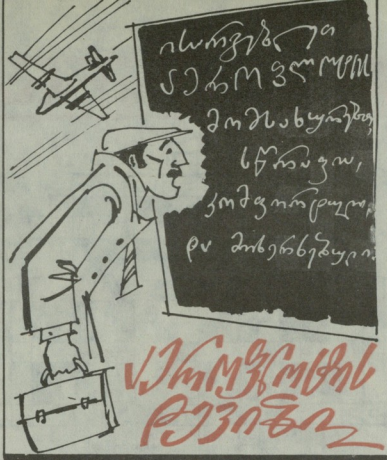 ისარგებლეთ
აეროფლოტის
მომსახურებით,
სწრაფი,
კომფორტული,
და მოხერხებული
აეროფლოტის
დევიზი